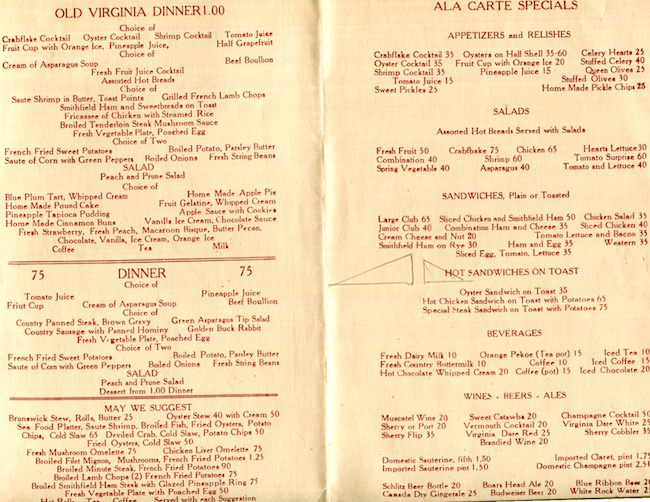 OLD VIRGINIA DINNER 1.00
Choice of
Crabflake Cocktail Oyster Cocktail Shrimp Cocktail Tomato Juice
Fruit Cup with Orange Ice, Pineapple Juice, Half Grapefruit
Choice of
Cream of Asparagus Soup Beef Boullion
Fresh Fruit Juice Cocktail
Assorted Hot Breads
Choice of
Saute Shrimp in Butter, Toast Points Grilled French Lamb Chops
Smithfield Ham and Sweetbreads on Toast
Fricassee of Chicken with Steamed Rice
Broiled Tenderloin Steak Mushroom Sauce
Fresh Vegetable Plate, Poached Egg
Choice of Two
French Fried Sweet Potatoes Boiled Potato, Parsley Butter
Saute of Corn with Green Peppers Boiled Onions Fresh String Beans
SALAD
Peach and Prune Salad
Choice of
Blue Plum Tart, Whipped Cream Home Made Apple Pie
Home Made Pound Cake Fruit Gelatine, Whipped Cream
Pineapple Tapioca Pudding Apple Sauce with Cookies
Home Made Cinnamon Buns Vanilla Ice Cream, Chocolate Sauce
Fresh Strawberry, Fresh Peach, Macaroon Bisque, Butter Pecan,
Chocolate, Vanilla, Ice Cream, Orange Ice
Coffee Tea Milk
75 DINNER 75
Choice of
Tomato Juice Pineapple Juice
Friut Cup Cream of Asparagus Soup Beef Boullion
Choice of
Country Panned Steak, Brown Gravy Green Asparagus Tip Salad
Country Sausage with Panned Hominy Golden Buck Rabbit
Fresh Vegetable Plate, Poached Egg
Choice of Two
French Fried Sweet Potatoes Boiled Potato, Parsley Butter
Saute of Corn with Green Peppers Boiled Onions Fresh String Beans
SALAD
Peach and Prune Salad
Dessert from 1.00 Dinner
MAY WE SUGGEST
Brunswick Stew, Rolls, Butter 25 Oyster Stew 40 with Cream 50
Sea Food Platter, Saute Shrimp, Broiled Fish, Fried Oysters, Potato
Chips, Cold Slaw 65 Deviled Crab, Cold Slaw, Potato Chips 50
Fried Oysters, Cold Slaw 50
Fresh Mushroom Omelette 75 Chicken Liver Omelette 75
Broiled Filet Mignon, Mushrooms, French Fried Potatoes 1.25
Broiled Minute Steak, French Fried Potatoes 90
Broiled Lamb Chops (2) French Fried Potatoes 75
Broiled Smithfield Ham Steak with Glazed Pineapple Ring 75
Fresh Vegetable Plate with Poached Egg 50
Hot Rolls Tea Coffee Served with each Suggestion
ALA CARTE SPECIALS
APPETIZERS and RELISHES
Crabflake Cocktail 35 Oysters on Half Shell 35-60 Celery Hearts 25
Oyster Cocktail 35 Fruit Cup with Orange Ice 20 Stuffed Celery 40
Shrimp Cocktail 35 Pineapple Juice 15 Queen Olives 25
Tomato Juice 15 Stuffed Olives 30
Sweet Pickles 25 Home Made Pickle Chips 25
SALADS
Assorted Hot Breads Served with Salads
Fresh Fruit 50 Crabflbake 75 Chicken 65 Hearts Lettuce 30
Combination 40 Shrimp 60 Tomato Surprise 60
Spring Vegetable 40 Asparagus 40 Tomato and Lettuce 40
SANDWICHES, Plain or Toasted
Large Club 65 Sliced Chicken and Smithfield Ham 50 Chicken Salad 35
Junior Club 40 Combination Ham and Cheese 35 Sliced Chicken 40
Cream Cheese and Nut 20 Tomato Lettuce and Bacon 35
Smithfield Ham on Rye 30 Ham and Egg 35 Western 35
Sliced Egg, Tomato, Lettuce 35
HOT SANDWICHES ON TOAST
Oyster Sandwich on Toast 35
Hot Chicken Sandwich on Toast with Potatoes 65
Special Steak Sandwich on Toast with Potatoes 75
BEVERAGES
Fresh Dairy Milk 10 Orange Pekoe (Tea pot) 15 Iced Tea 10
Fresh Country Buttermilk 10 Coffee 10 Iced Coffee 15
Hot Chocolate Whipped Cream 20 Coffee (pot) 15 Iced Chocolate 20
WINES - BEERS - ALES
Muscatel Wine 20 Sweet Catawba 20 Champagne Cocktail 50
Sherry or Port 20 Vermouth Cocktail 20 Virginia Dare White 25
Sherry Flip 35 Virginia Dare Red 25 Sherry Cobbler 35
Brandied Wine 20
Domestic Sauterine, fifth 1.50 Imported Claret, pint 1.75
Imported Sauterine pint 1.50 Domestic Champagne pint 2.50
Schlitz Beer Bottle 20 Boars Head Ale 20 Blue Ribbon Beer 20
Canada Dry Gingerale 25 Budweiser Beer 20 White Rock Water 25